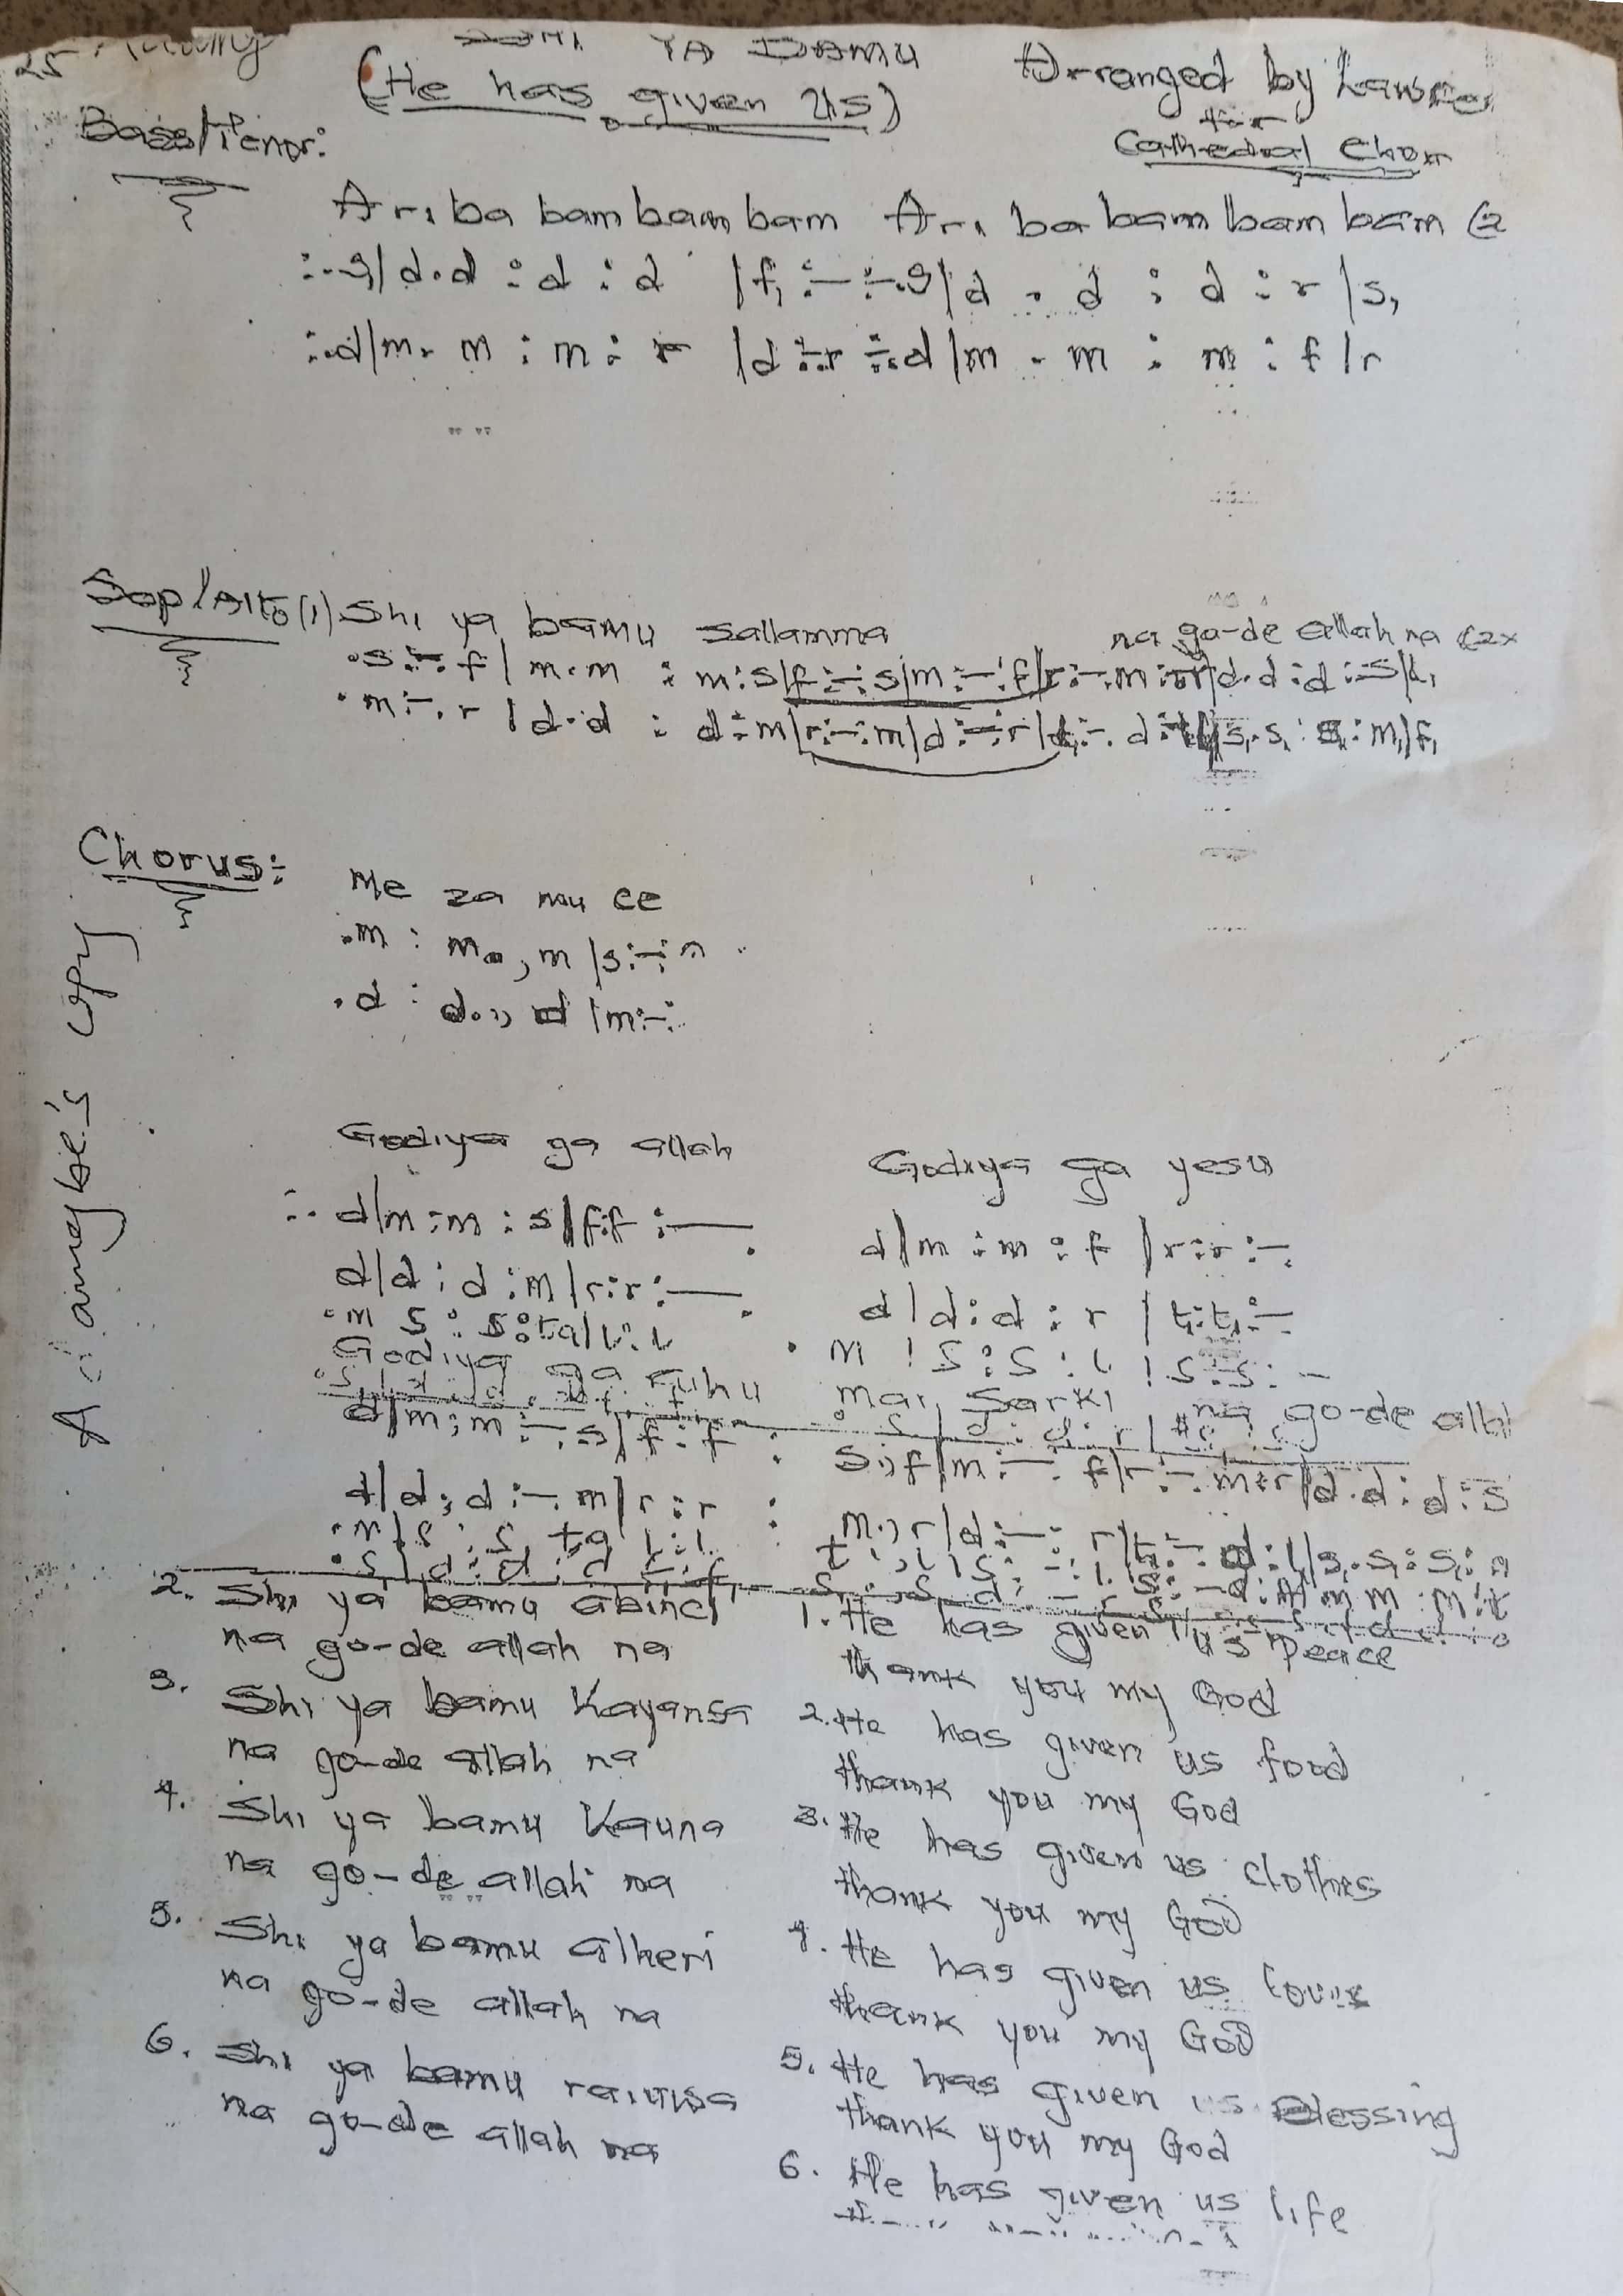 25
YA BAMU
(He has given us)
Arranged by
for
Cathedral Choir
Bass/Tenor:
Ari ba bam bam bam Ari ba bam bam bam (2
:.s,|d.d :d :d |f, :— :—.s,|d . d : d : r |s,
:.d|m. m : m : r |d :—.r :—.d|m . m : m : f |r
Sop/Alto (1) Shi ya bamu sallamma na go-de allah na (2x
.s :—. f | m.m : m:s|f:—:s|m:—:f|r:—.m:r|d.d:d:s|l,
.m:—. r | d.d : d:m|r:—:m|d:—:r|t,:—. d:l,|s,.s,:s,:m,|f,
Chorus:
Me za mu ce
.m : m . , m |s:—:
.d : d . , d |m:—:
A copy
Godiya ga allah
Godiya ga yesu
:. d|m:m : s|f:f :—.
d|m : m : f |r:r :—
d|d : d :m|r:r:—.
d | d:d : r | t,:t,:—
.m s : s:ta|l:l
. m ! s : s : l ! s:s: —
Godiya ga ruhu
mai Sarki na go-de alla
d|m:m :—. s|f:f :
s.,f|m:—. f|r:—.m:r|d.d:d:s
d|d:d :—. m|r:r :
m.,r|d:—: r|t,:—. d:l,|s,.s,:s,:
.m|s : s, ta l:l
2. Shi ya bamu abinci
na go-de allah na
3. Shi ya bamu Kayansa
na go-de allah na
4. Shi ya bamu Kauna
na go-de allah na
5. Shi ya bamu alheri
na go-de allah na
6. Shi ya bamu
na go-de allah na
1. He has given us Peace
thank you my God
2. He has given us food
thank you my God
3. He has given us clothes
thank you my God
4. He has given us love
thank you my God
5. He has given us Blessing
thank you my God
6. He has given us life